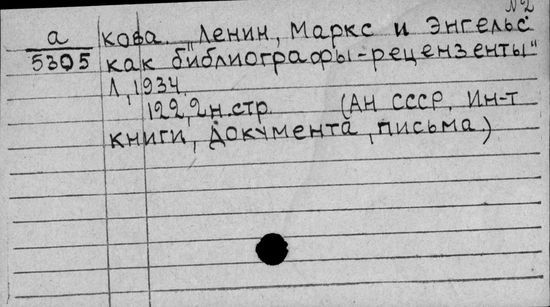 №2
а кова. "Ленин, Маркс и Энгельс
5305 как библиографы-рецензенты"
Л, 1934.
122, 2 н. стр. (Ан СССР, Ин-т
книги, документа, письма.)